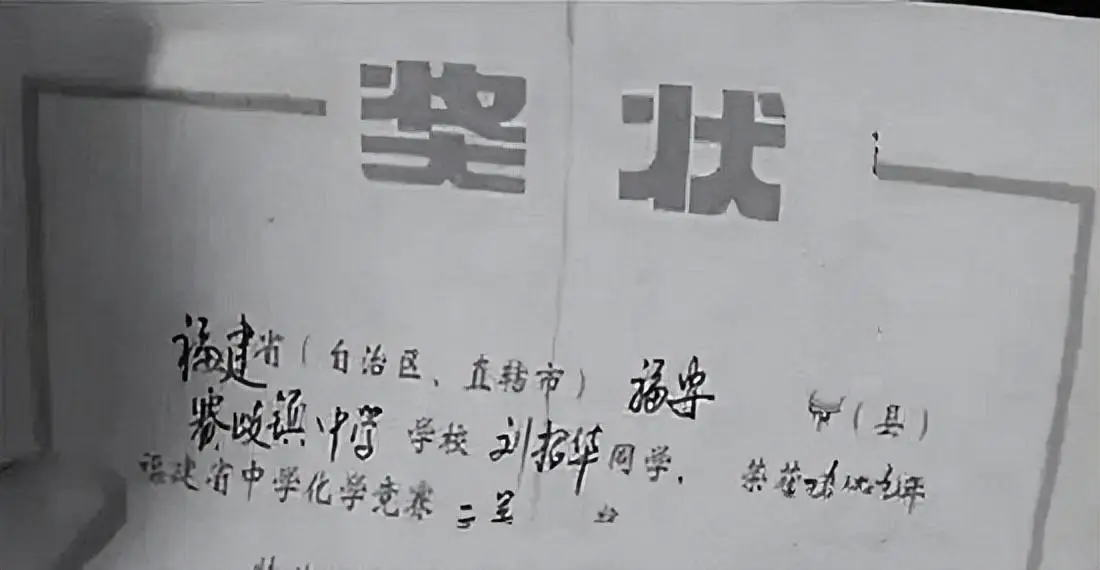 奖状
福建省(自治区、直辖市) 福安 市(县)
赛岐镇中学 学校 刘招华同学, 荣获
福建省中学化学竞赛 二